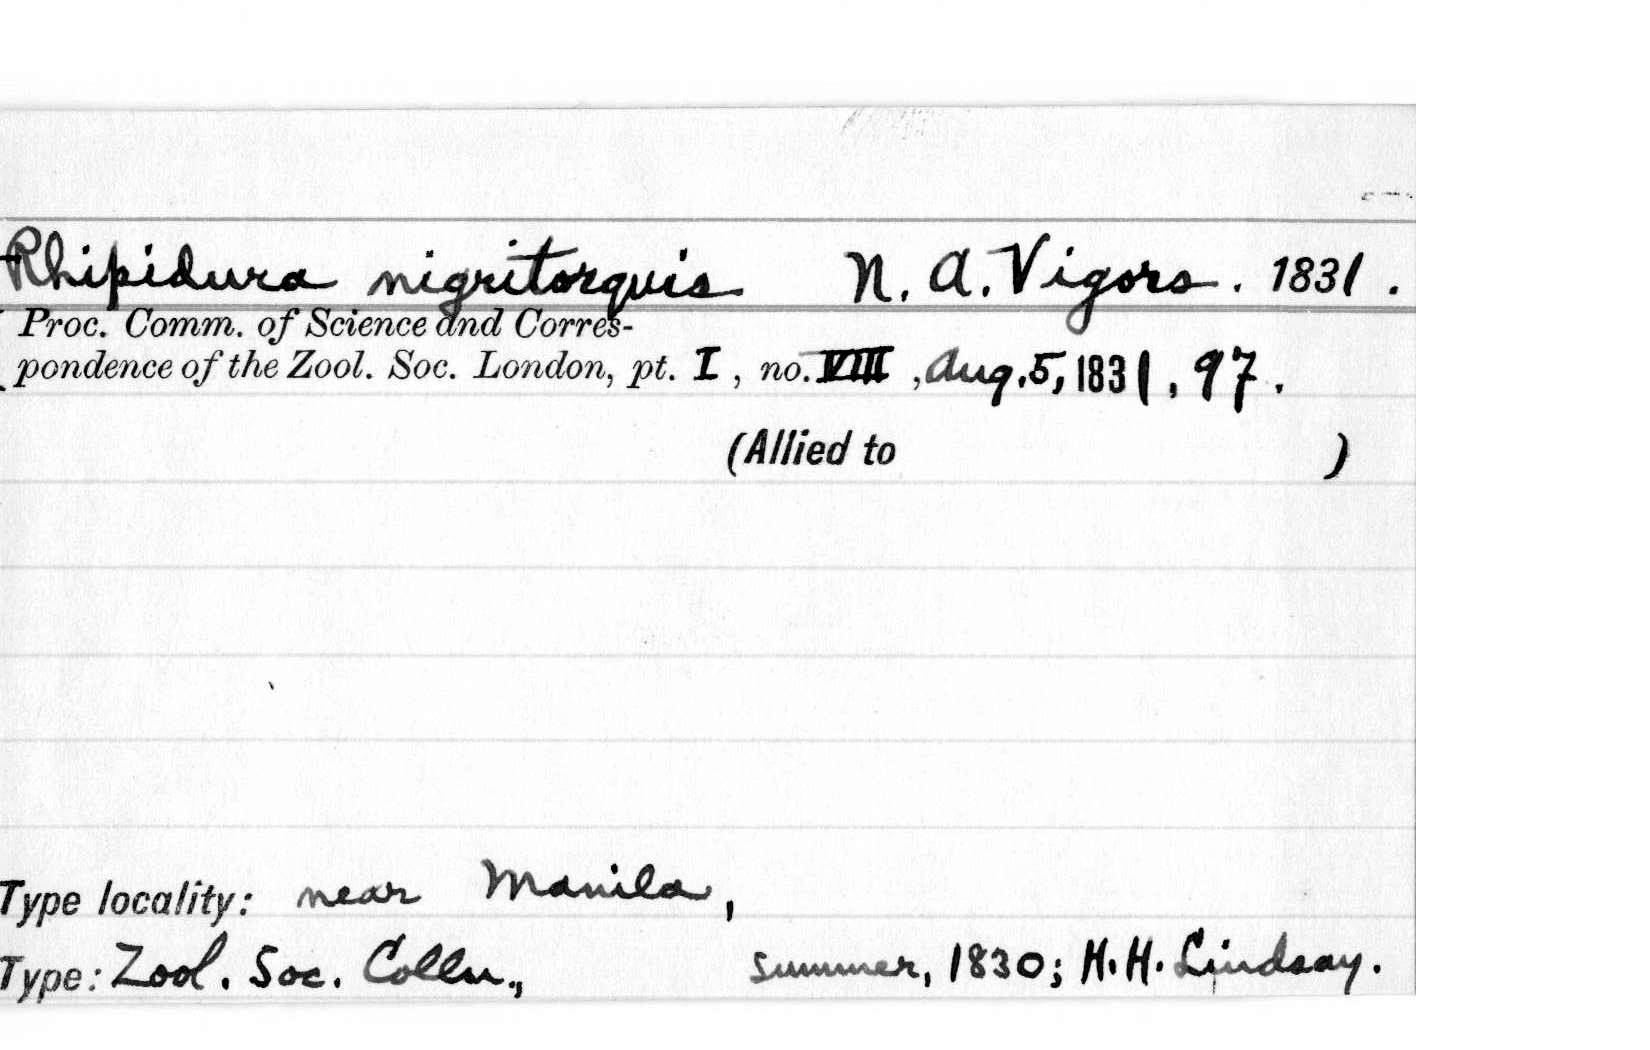 Rhipidura nigritorquis N. A. Vigors. 1831.
Proc. Comm. of Science and Corres-
pondence of the Zool. Soc. London, pt. I, no. VIII, Aug. 5, 1831, 97.
(Allied to )
Type locality: near Manila,
Type: Zool. Soc. Colln., summer, 1830; H. H. Lindsay.